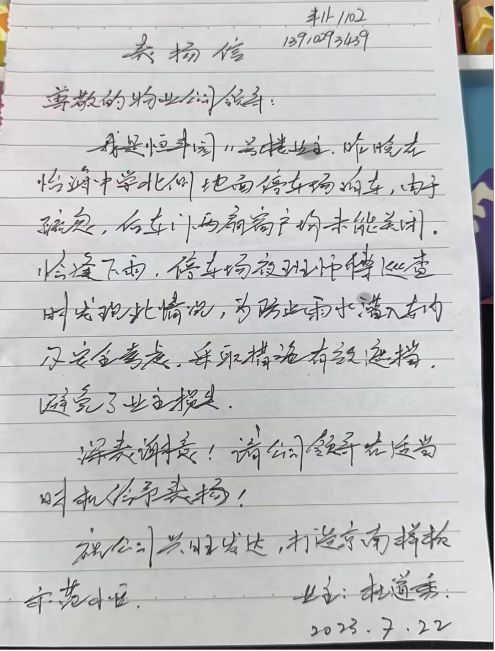 丰11-1102
13910293439
表扬信
尊敬的物业公司领导:
我是恒丰园11号楼业主,昨晚在
怡海中学北侧地面停车场泊车,由于
疏忽,后车门两扇窗户均未能关闭。
恰逢下雨,停车场夜班师傅巡查
时发现此情况,为防止雨水灌入车内
及安全考虑,采取措施有效遮挡,
避免了业主损失。
深表谢意!请公司领导在适当
时机给予表扬!
祝公司兴旺发达,打造京南样板
示范小区。
业主:杜道秀.
2023.7.22